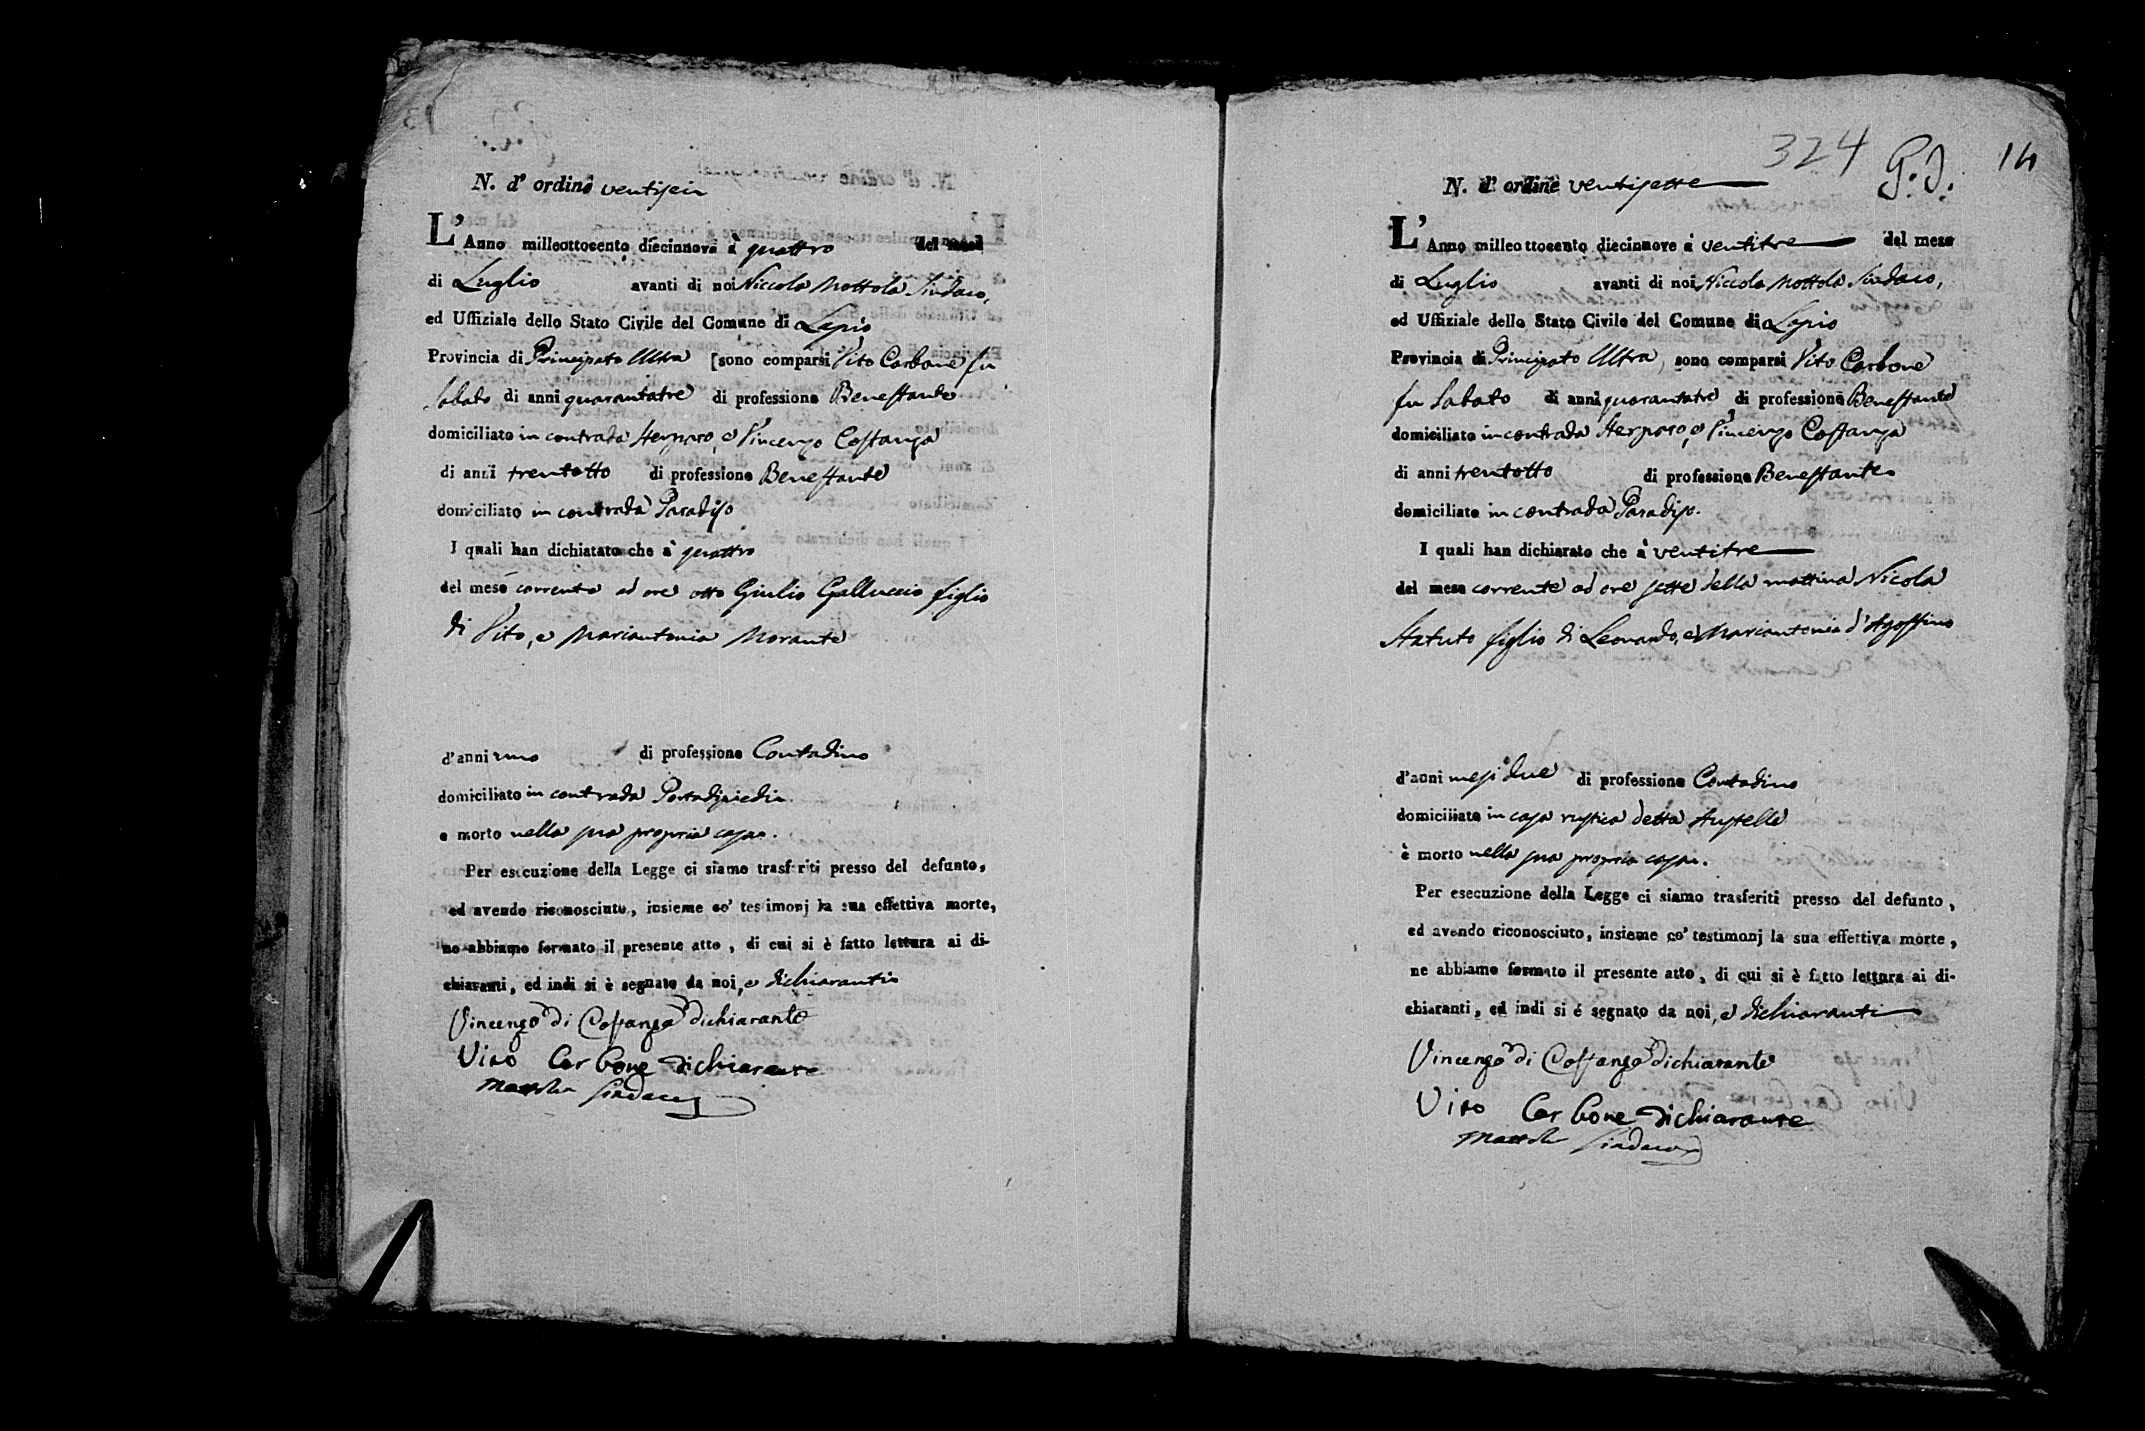 N. d'ordine ventisei
L'Anno milleottocento diecinnove à quattro del mese
di Luglio avanti di noi Niccola Mottola Sindaco,
ed Uffiziale dello Stato Civile del Comune di Lapio
Provincia di Principato Ultra [sono comparsi Vito Carbone fu
Sabato di anni quarantatre di professione Benestante
domiciliato in contrada e Vincenzo Costanza
di anni trentotto di professione Benestante
domiciliato in contrada Paradiso
I quali han dichiatato che à quattro
del mese corrente ad ore otto Giulio Galluccio figlio
di Vito, e Mariantonia Morante
d'anni uno di professione Contadino
domiciliato in contrada
e morto nella sua propria casa.
Per esecuzione della Legge ci siamo trasferiti presso del defunto,
ed avendo riconosciuto, insieme co' testimonj la sua effettiva morte,
ne abbiamo formato il presente atto, di cui si è fatto lettura ai di-
chiaranti, ed indi si è segnato da noi, e dichiaranti
Vincenzo di Costanza dichiarante
Vito Carbone dichiarante
Mottola Sindaco
324 14
N. d'ordine ventisette
L'Anno milleottocento diecinnove à ventitre del mese
di Luglio avanti di noi Niccola Mottola Sindaco,
ed Uffiziale dello Stato Civile del Comune di Lapio
Provincia di Principato Ultra, sono comparsi Vito Carbone
fu Sabato di anni quarantatre di professione Benestante
domiciliato in contrada e Vincenzo Costanza
di anni trentotto di professione Benestante
domiciliato in contrada Paradiso.
I quali han dichiarato che à ventitre
del mese corrente ad ore sette della mattina Nicola
Statuto figlio di Leonardo, e Mariantonia d'Agostino
d'anni mesi due di professione Contadino
domiciliato in casa rustica detta
è morto nella sua propria casa.
Per esecuzione della Legge ci siamo trasferiti presso del defunto,
ed avendo riconosciuto, insieme co' testimonj la sua effettiva morte,
ne abbiamo formato il presente atto, di cui si è fatto lettura ai di-
chiaranti, ed indi si é segnato da noi, e dichiaranti
Vincenzo di Costanza dichiarante
Vito Carbone dichiarante
Mottola Sindaco